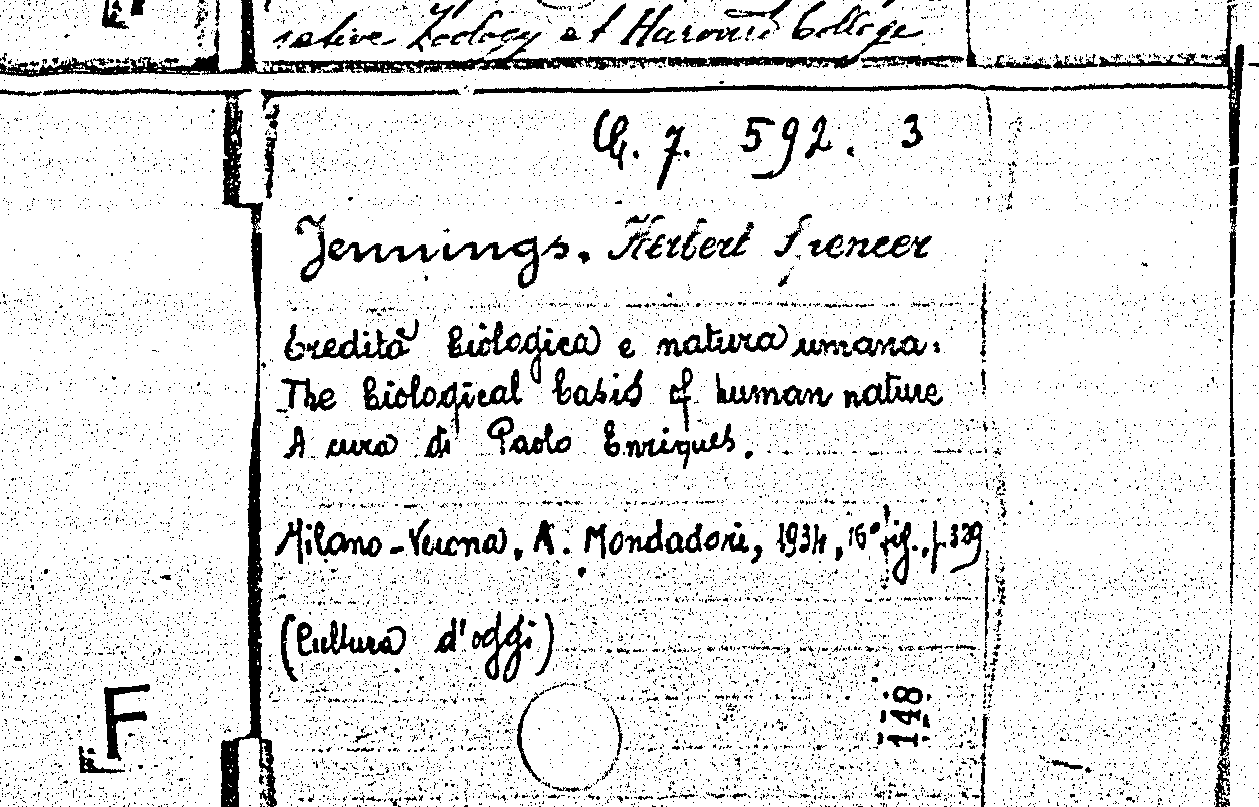 rative Zoology at Harvard College
G. 7. 592. 3
Jennings. Herbert Spencer
Eredità biologica e natura umana.
The biological basis of human nature
A cura di Paolo Enriques.
Milano-Verona, A. Mondadori, 1934, 16° fig., p. 339
(Cultura d'oggi)
148
F